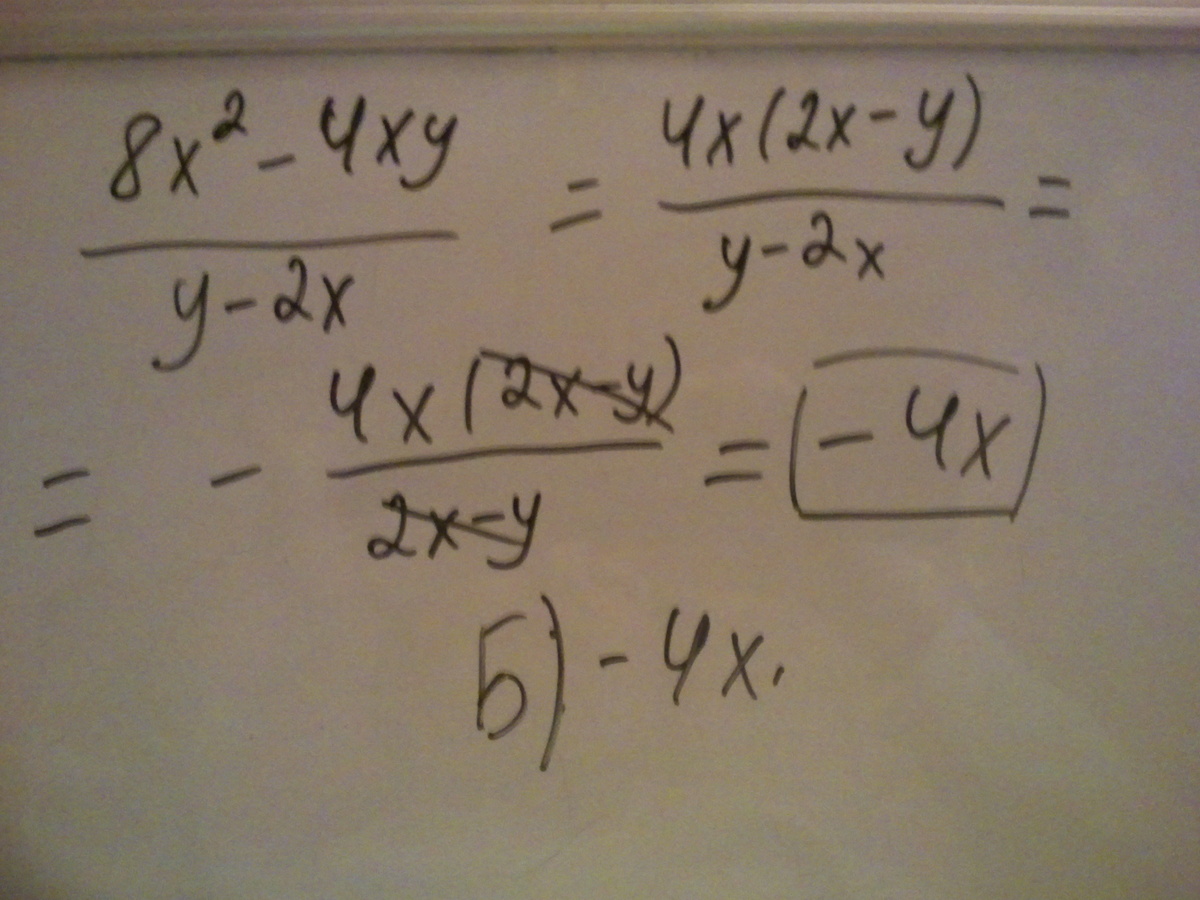 8x² - 4xy / y - 2x = 4x(2x - y) / y - 2x =
= - 4x(2x - y) / 2x - y = - 4x
Б) - 4x.